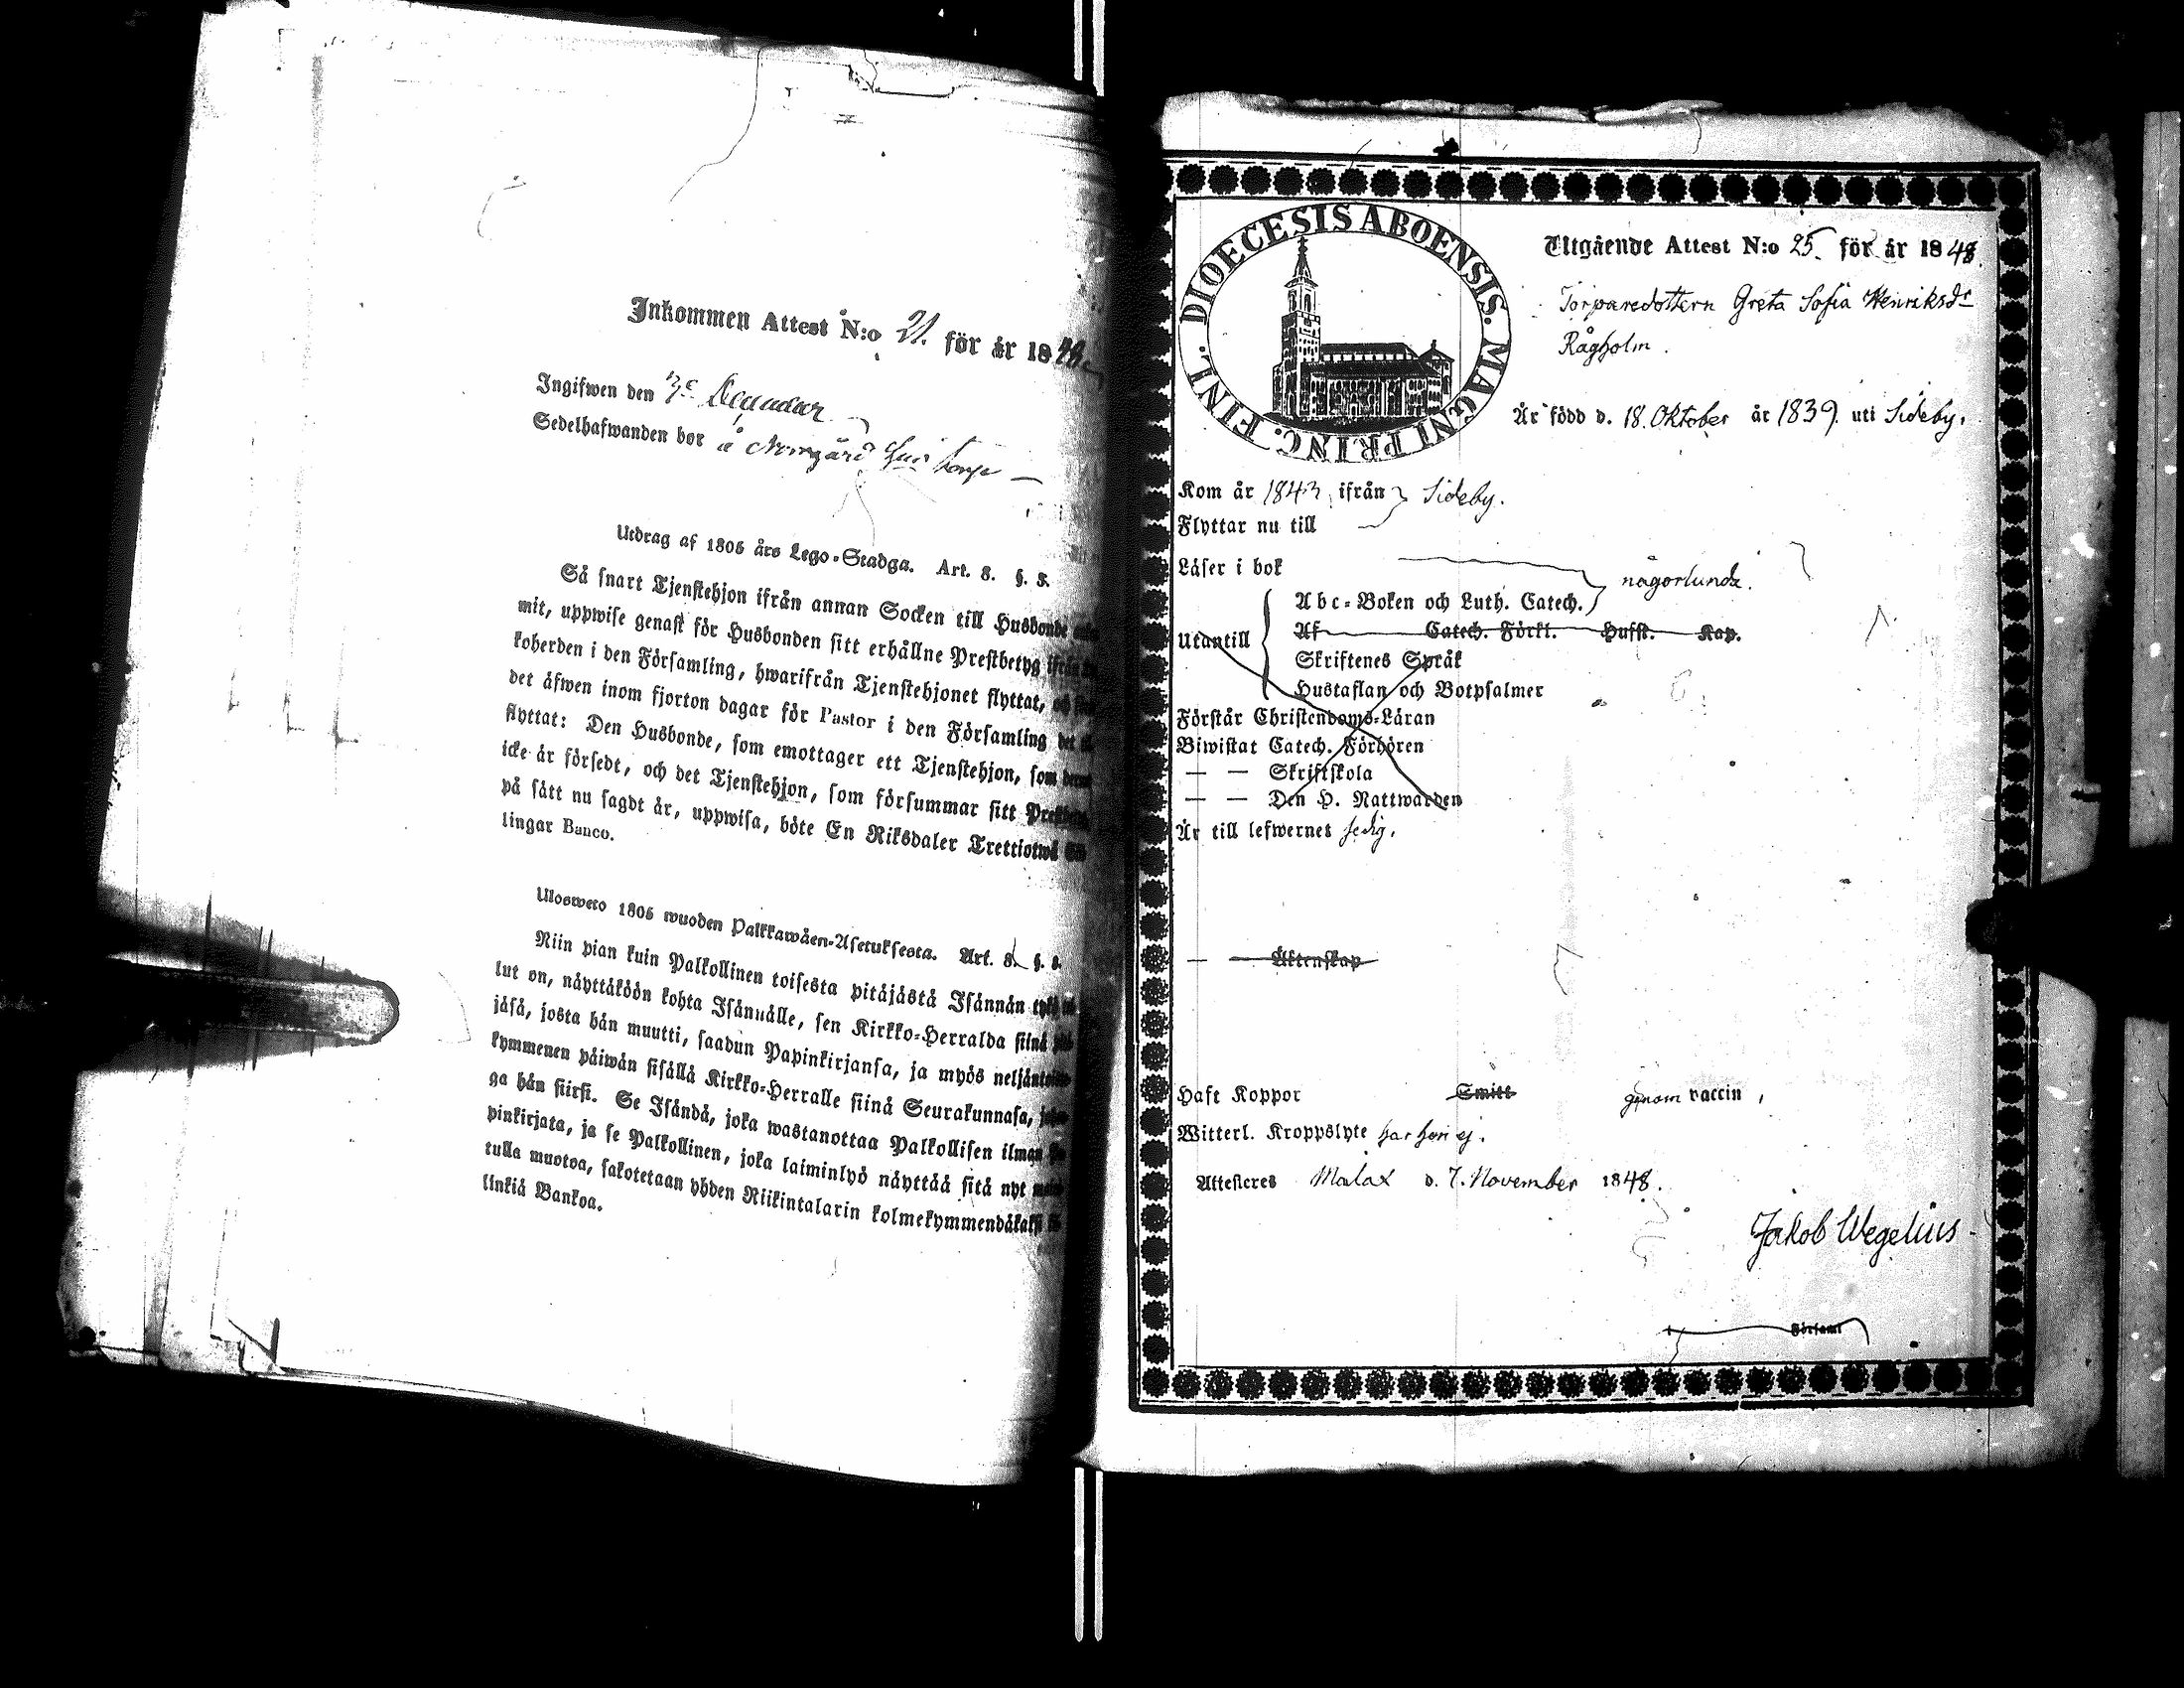 Inkommen Attest N:o 21. för år 18
Ingifwen den 3e
Sedelhafwanden bor å Norrgård
Utdrag af 1805 års Lego-Stadga. Art. 8. §. 3.
Så snart Tjenstehjon ifrån annan Socken till Husbonde
mit, uppwise genast för Husbonden sitt erhållne Prestbetyg ifrån
koherden i den Församling, hwarifrån Tjenstehjonet flyttat,
det äfwen inom fjorton dagar för Pastor i den Församling det
flyttat: Den Husbonde, som emottager ett Tjenstehjon, som
icke är försedt, och det Tjenstehjon, som försummar sitt
på sätt nu sagdt är, uppwisa, böte En Riksdaler Trettiotwå
lingar Banco.
Ulosweto 1805 wuoden Palkkawäen-Asetuksesta. Art. 8. §.
Niin pian kuin Palkollinen toisesta pitäjästä Isännän
lut on, näyttäköön kohta Isännälle, sen Kirkko-Herralda siinä
jäsä, josta hän muutti, saadun Papinkirjansa, ja myös
kymmenen päiwän sisällä Kirkko-Herralle siinä Seurakunnasa,
ga hän siirsi. Se Isändä, joka wastanottaa Palkollisen ilman
pinkirjata, ja se Palkollinen, joka laiminlyö näyttää sitä nyt
tulla muotoa, sakotetaan yhden Riikintalarin
linkiä Bankoa.
DIOECESIS ABOENSIS. MAGNI PRINC. FINL.
Utgående Attest N:o 25. för år 1848.
Torparedottern Greta Sofia Henriksdr
Rågholm.
Är född d. 18. Oktober år 1839. uti Sideby.
Kom år 1843 ifrån Sideby.
Flyttar nu till
Läser i bok
någorlunda.
Abc-Boken och Luth. Catech.
Af Catech. Förkl. Husst. Kap.
Utantill
Skriftenes Språk
Hustaflan och Botpsalmer
Förstår Christendoms-Läran
Biwistat Catech. Förhören
— — Skriftskola
— — Den H. Nattwarden
Är till lefwernet sedig.
— Äktenskap
Haft Koppor Smitt genom vaccin,
Witterl. Kroppslyte har hon ej.
Attesteres Malax d. 7. November 1848.
Jakob Wegelius
Församl